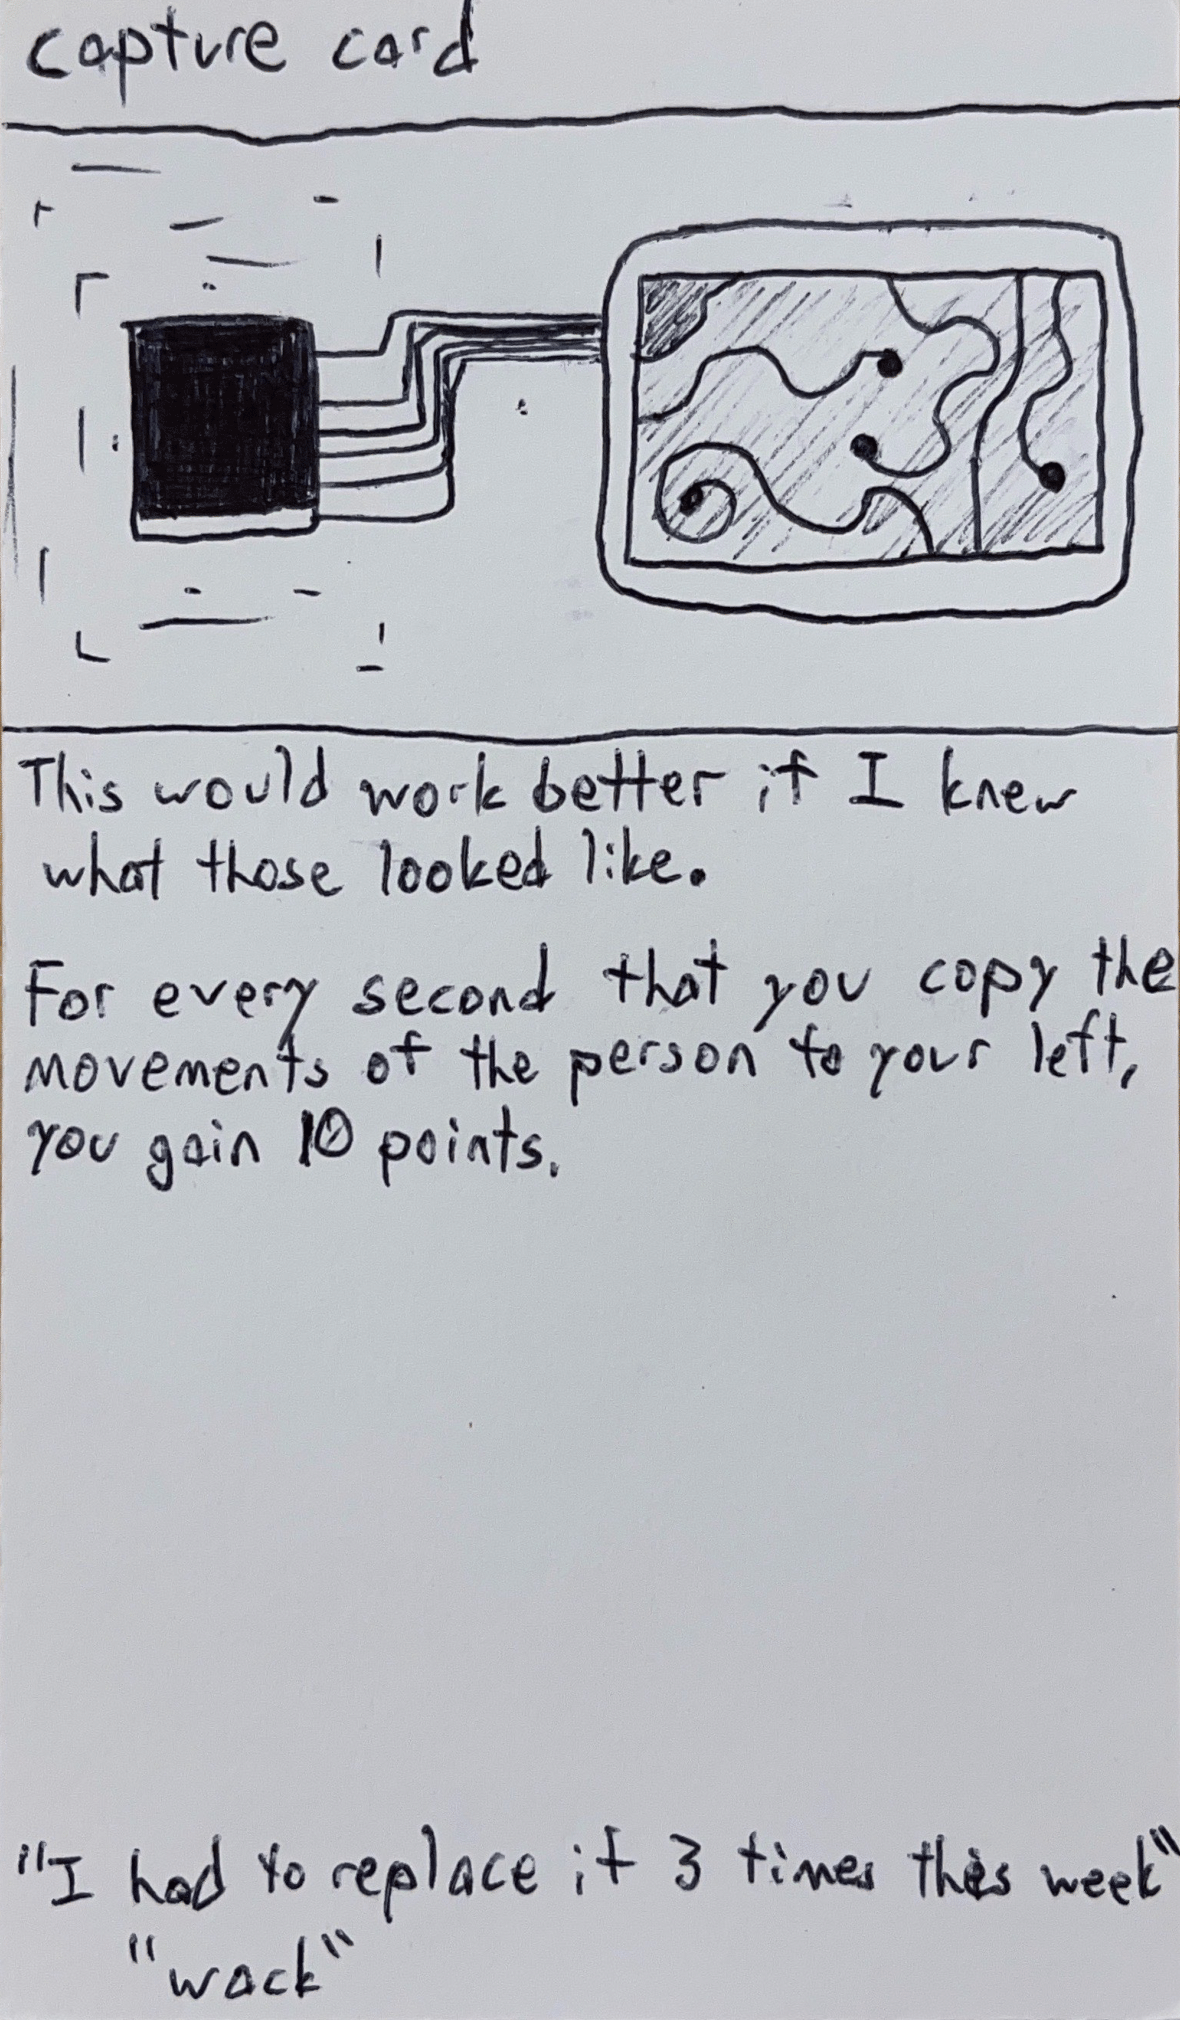 capture card
This would work better if I knew
what those looked like.
For every second that you copy the
movements of the person to your left,
you gain 10 points.
"I had to replace it 3 times this week"
"wack"